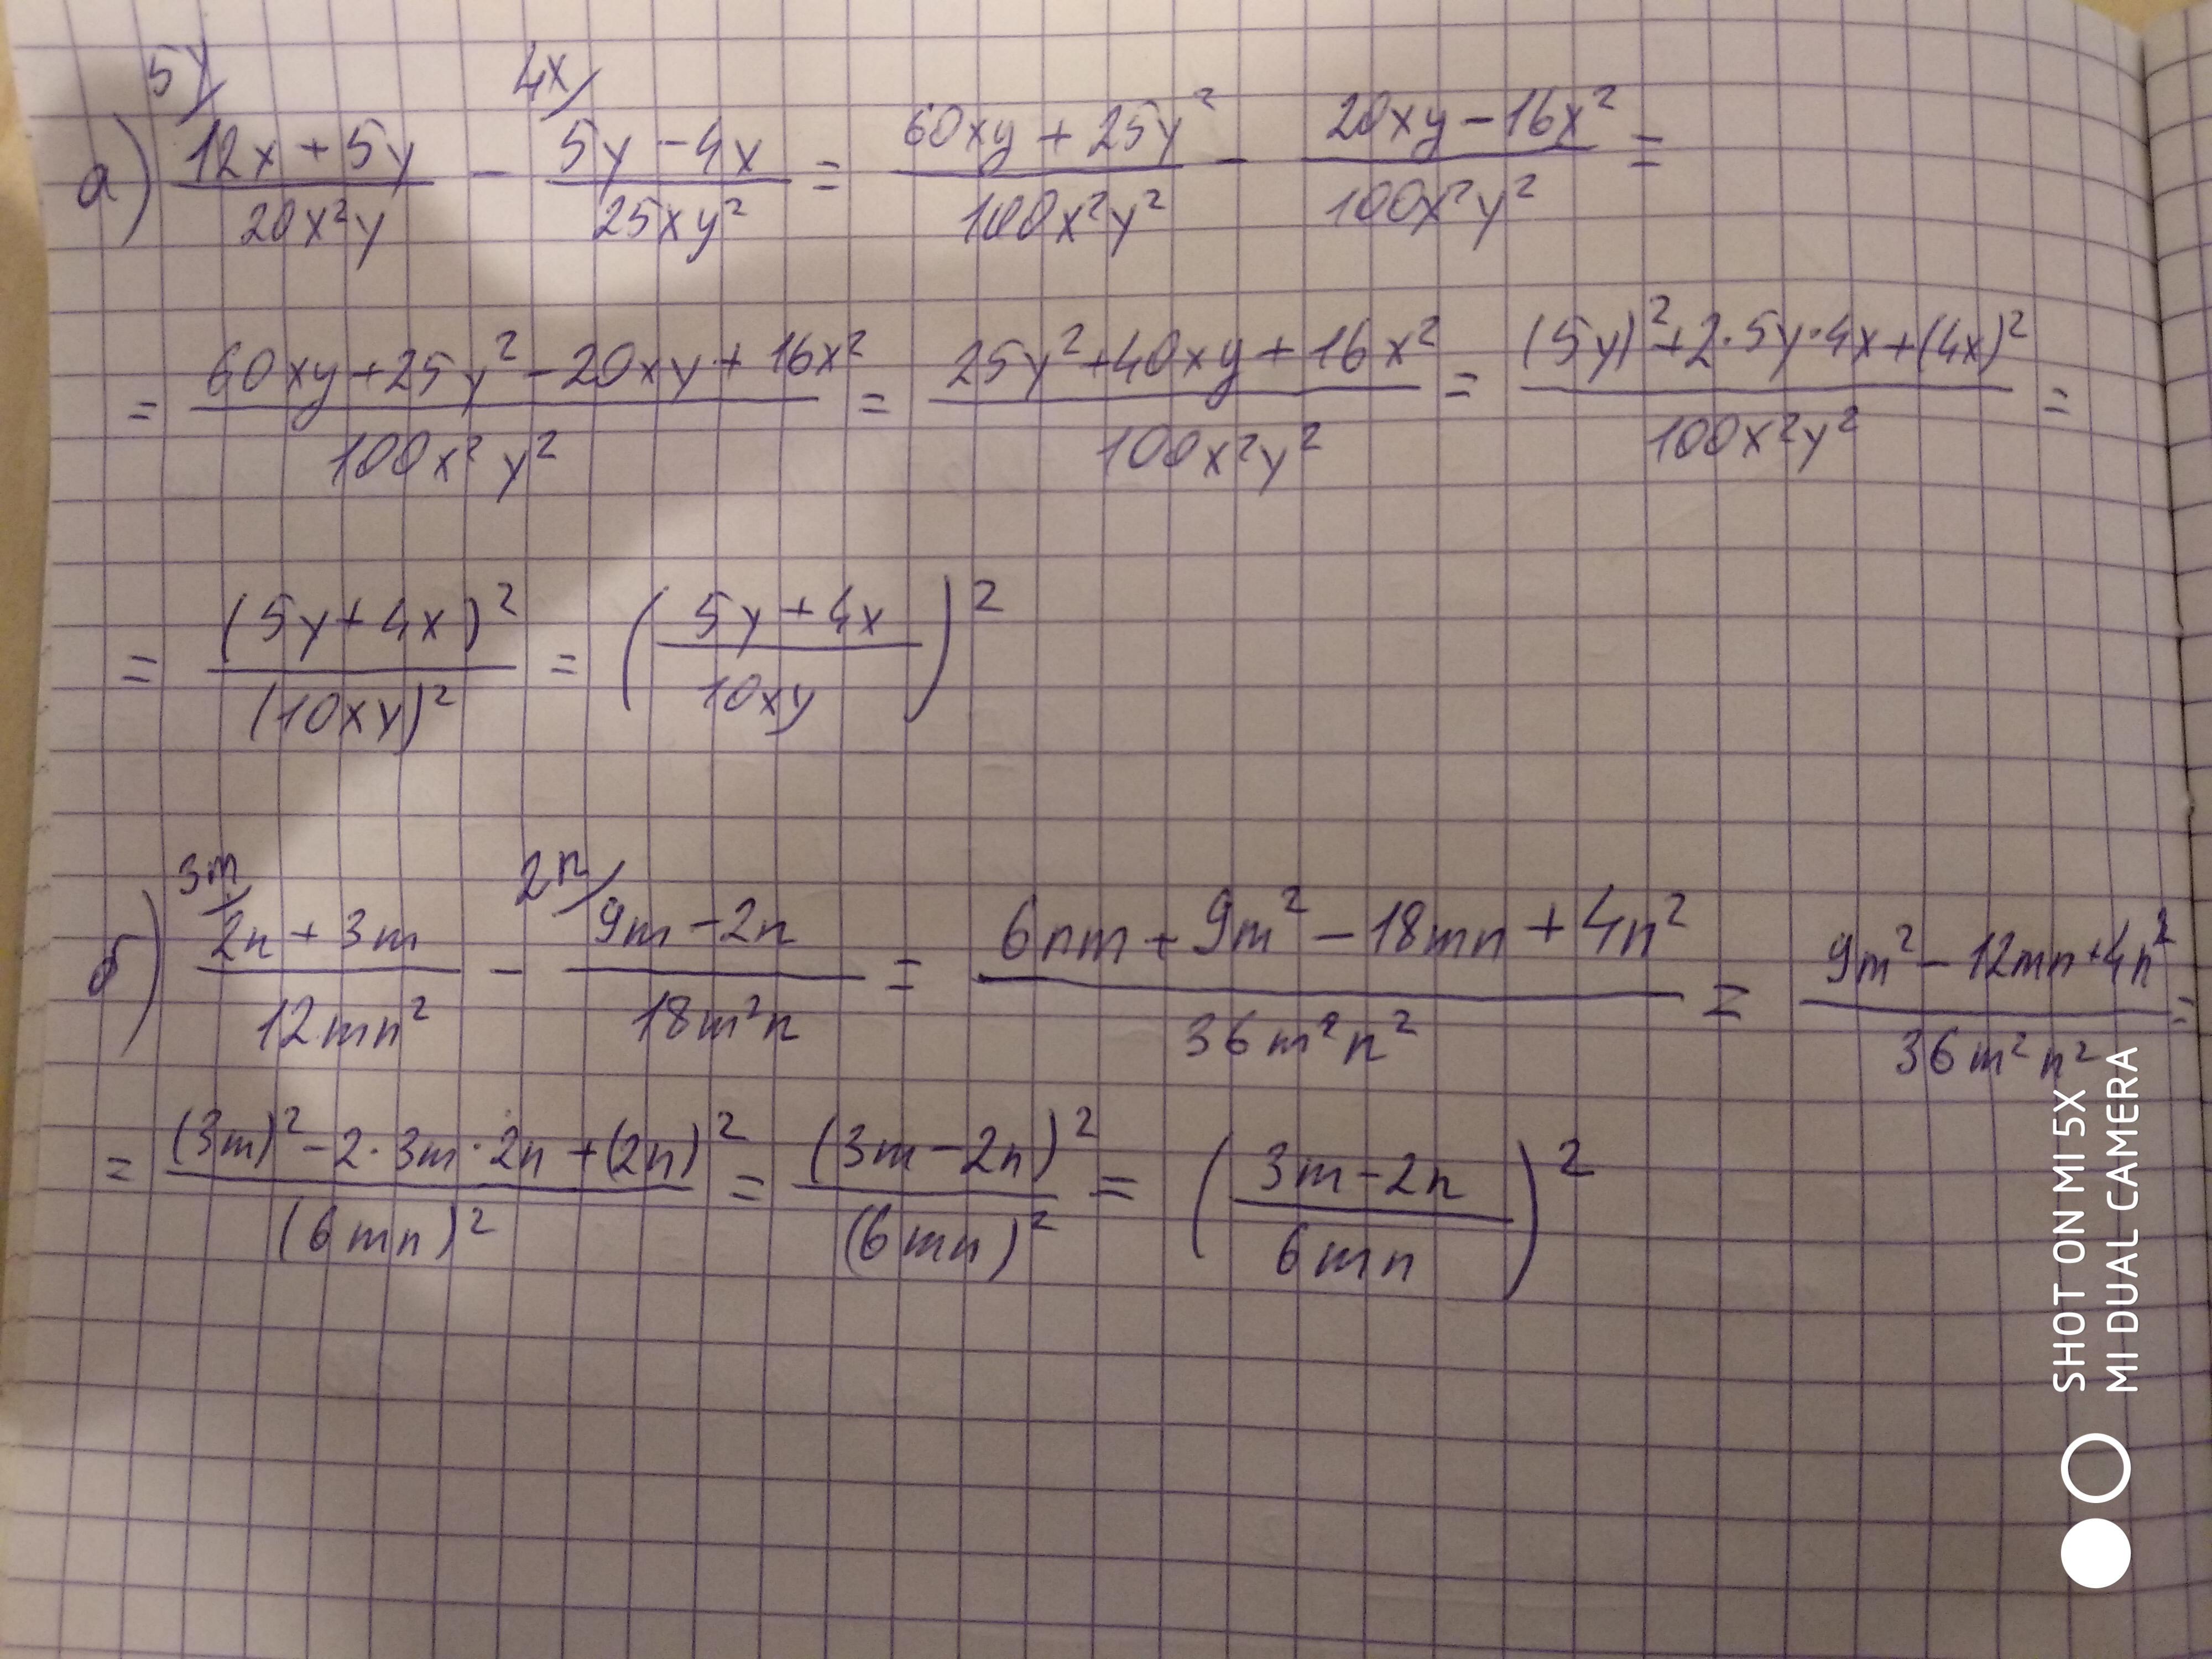 5y/ 4x/
а) (12x + 5y)/(20x²y) - (5y - 4x)/(25xy²) = (60xy + 25y²)/(100x²y²) - (20xy - 16x²)/(100x²y²) =
= (60xy + 25y² - 20xy + 16x²)/(100x²y²) = (25y² + 40xy + 16x²)/(100x²y²) = ((5y)² + 2·5y·4x + (4x)²)/(100x²y²) =
= (5y + 4x)²/(10xy)² = ((5y + 4x)/(10xy))²
3m/ 2n/
б) (2n + 3m)/(12mn²) - (9m - 2n)/(18m²n) = (6nm + 9m² - 18mn + 4n²)/(36m²n²) = (9m² - 12mn + 4n²)/(36m²n²) =
= ((3m)² - 2·3m·2n + (2n)²)/(6mn)² = (3m - 2n)²/(6mn)² = ((3m - 2n)/(6mn))²
SHOT ON MI 5X
MI DUAL CAMERA